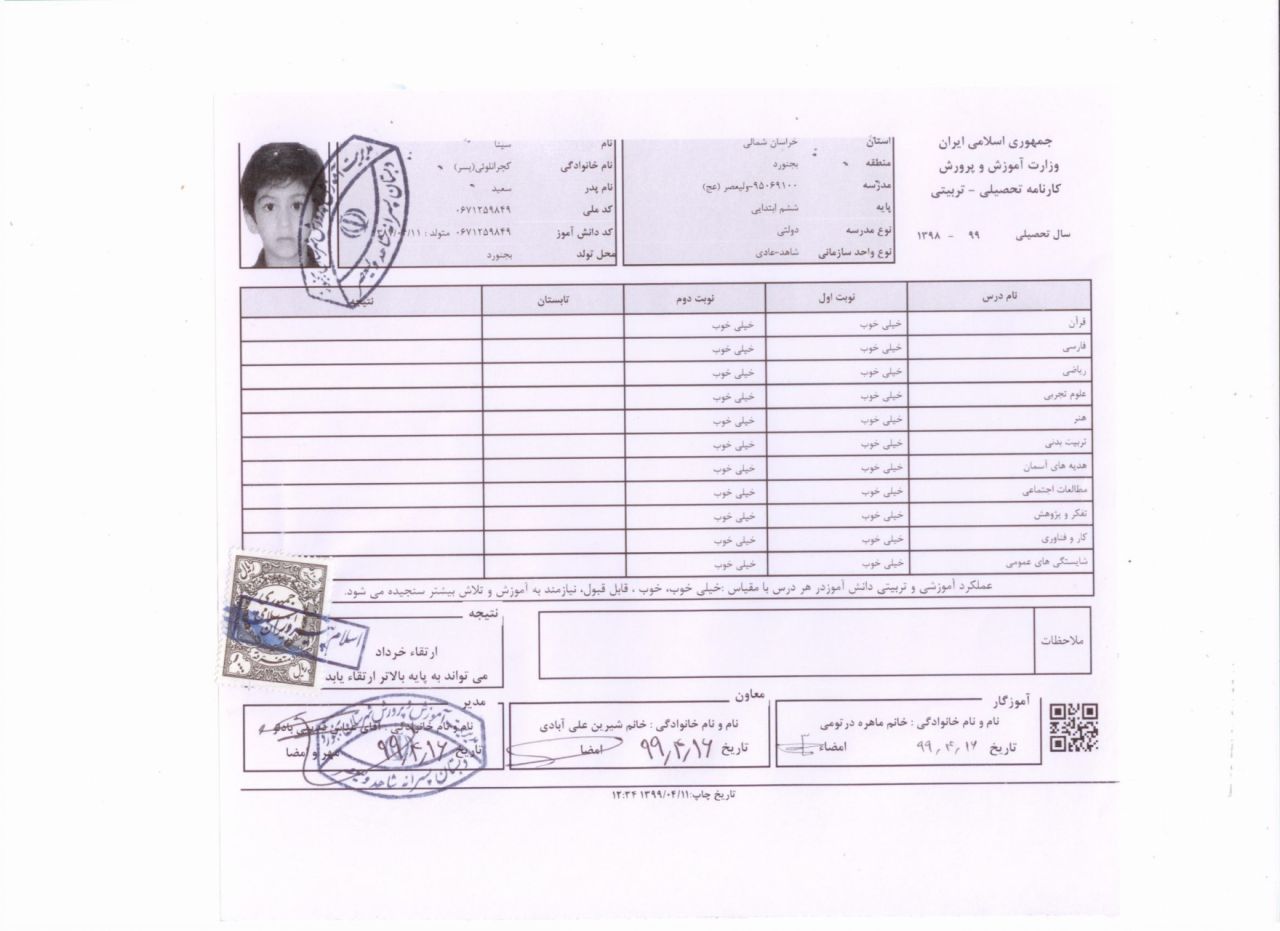 جمهوری اسلامی ایران
وزارت آموزش و پرورش
کارنامه تحصیلی - تربیتی
سال تحصیلی ۹۹ - ۱۳۹۸
استان خراسان شمالی
منطقه بجنورد
مدرسه ۹۵۰۶۹۱۰۰-ولیعصر (عج)
پایه ششم ابتدایی
نوع مدرسه دولتی
نوع واحد سازمانی شاهد-عادی
نام سینا
نام خانوادگی کجرانلوئی(پسر)
نام پدر سعید
کد ملی ۰۶۷۱۲۵۹۸۴۹
کد دانش آموز ۰۶۷۱۲۵۹۸۴۹ متولد :
محل تولد بجنورد
نام درس نوبت اول نوبت دوم تابستان نتیجه
قرآن خیلی خوب خیلی خوب
فارسی خیلی خوب خیلی خوب
ریاضی خیلی خوب خیلی خوب
علوم تجربی خیلی خوب خیلی خوب
هنر خیلی خوب خیلی خوب
تربیت بدنی خیلی خوب خیلی خوب
هدیه های آسمان خیلی خوب خیلی خوب
مطالعات اجتماعی خیلی خوب خیلی خوب
تفکر و پژوهش خیلی خوب خیلی خوب
کار و فناوری خیلی خوب خیلی خوب
شایستگی های عمومی خیلی خوب خیلی خوب
عملکرد آموزشی و تربیتی دانش آموزدر هر درس با مقیاس :خیلی خوب، خوب ، قابل قبول، نیازمند به آموزش و تلاش بیشتر سنجیده می شود.
ملاحظات
نتیجه
ارتقاء خرداد
می تواند به پایه بالاتر ارتقاء یابد
آموزگار
نام و نام خانوادگی : خانم ماهره درتومی
تاریخ ۹۹,۴,۱۶ امضاء
معاون
نام و نام خانوادگی : خانم شیرین علی آبادی
تاریخ ۹۹,۴,۱۶ امضا
مدیر
نام و نام خانوادگی : آقای
تاریخ ۹۹,۴,۱۶ مهر و امضا
دبستان پسرانه شاهد ولیعصر
تاریخ چاپ:۱۳۹۹/۰۴/۱۱ ۱۲:۳۴